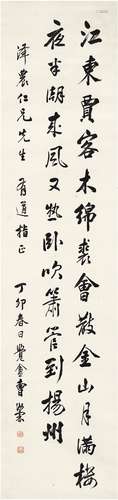 江東賈客木綿裘會散金山月滿樓
夜半潮來風又熟臥吹簫管到揚州
澤農仁兄先生 有道指正
丁卯春日